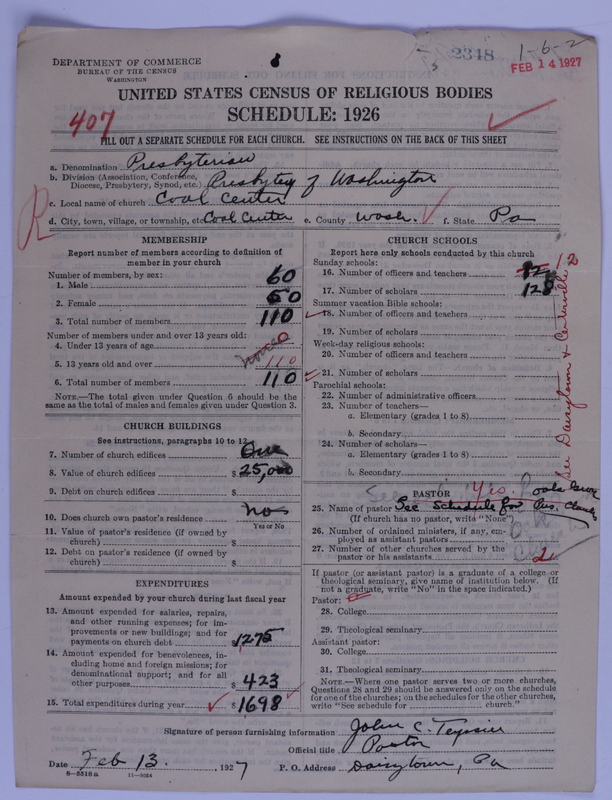 2348
1-6-2
FEB 14 1927
DEPARTMENT OF COMMERCE
BUREAU OF THE CENSUS
WASHINGTON
UNITED STATES CENSUS OF RELIGIOUS BODIES
SCHEDULE: 1926
407
FILL OUT A SEPARATE SCHEDULE FOR EACH CHURCH. SEE INSTRUCTIONS ON THE BACK OF THIS SHEET
a. Denomination Presbyterian
b. Division (Association, Conference, Diocese, Presbytery, Synod, etc.) Presbytery of Washington
c. Local name of church Coal Center
d. City, town, village, or township, etc. Coal Center e. County Wash. f. State Pa
R
MEMBERSHIP
Report number of members according to definition of
member in your church
Number of members, by sex:
1. Male 60
2. Female 50
3. Total number of members 110
Number of members under and over 13 years old:
4. Under 13 years of age 0
5. 13 years old and over 110
6. Total number of members 110
NOTE.—The total given under Question 6 should be the
same as the total of males and females given under Question 3.
CHURCH BUILDINGS
See instructions, paragraphs 10 to 12
7. Number of church edifices One
8. Value of church edifices $ 25,000
9. Debt on church edifices $
10. Does church own pastor's residence? No
Yes or No
11. Value of pastor's residence (if owned by
church) $
12. Debt on pastor's residence (if owned by
church) $
EXPENDITURES
Amount expended by your church during last fiscal year
13. Amount expended for salaries, repairs,
and other running expenses; for im-
provements or new buildings; and for
payments on church debt 1275
14. Amount expended for benevolences, in-
cluding home and foreign missions; for
denominational support; and for all
other purposes $ 423
15. Total expenditures during year $ 1698
CHURCH SCHOOLS
Report here only schools conducted by this church
Sunday schools:
16. Number of officers and teachers 12 12
17. Number of scholars 128
Summer vacation Bible schools:
18. Number of officers and teachers
19. Number of scholars
Week-day religious schools:
20. Number of officers and teachers
21. Number of scholars
Parochial schools:
22. Number of administrative officers
23. Number of teachers—
a. Elementary (grades 1 to 8)
b. Secondary
24. Number of scholars—
a. Elementary (grades 1 to 8)
b. Secondary
See Daisytown & Centerville
PASTOR
Yes.
25. Name of pastor See Schedule for
(If church has no pastor, write "None")
26. Number of ordained ministers, if any, em-
ployed as assistant pastors
27. Number of other churches served by the
pastor or his assistants 2
If pastor (or assistant pastor) is a graduate of a college or
theological seminary, give name of institution below. (If
not a graduate, write "No" in the space indicated.)
Pastor:
28. College
29. Theological seminary
Assistant pastor:
30. College
31. Theological seminary
NOTE.—Where one pastor serves two or more churches,
Questions 28 and 29 should be answered only on the schedule
for one of the churches; on the schedules for the other churches,
write "See schedule for church."
Signature of person furnishing information John C. Teyssier
Official title Pastor
Date Feb 13, 1927 P. O. Address Daisytown, Pa
8-5516a 11-9024